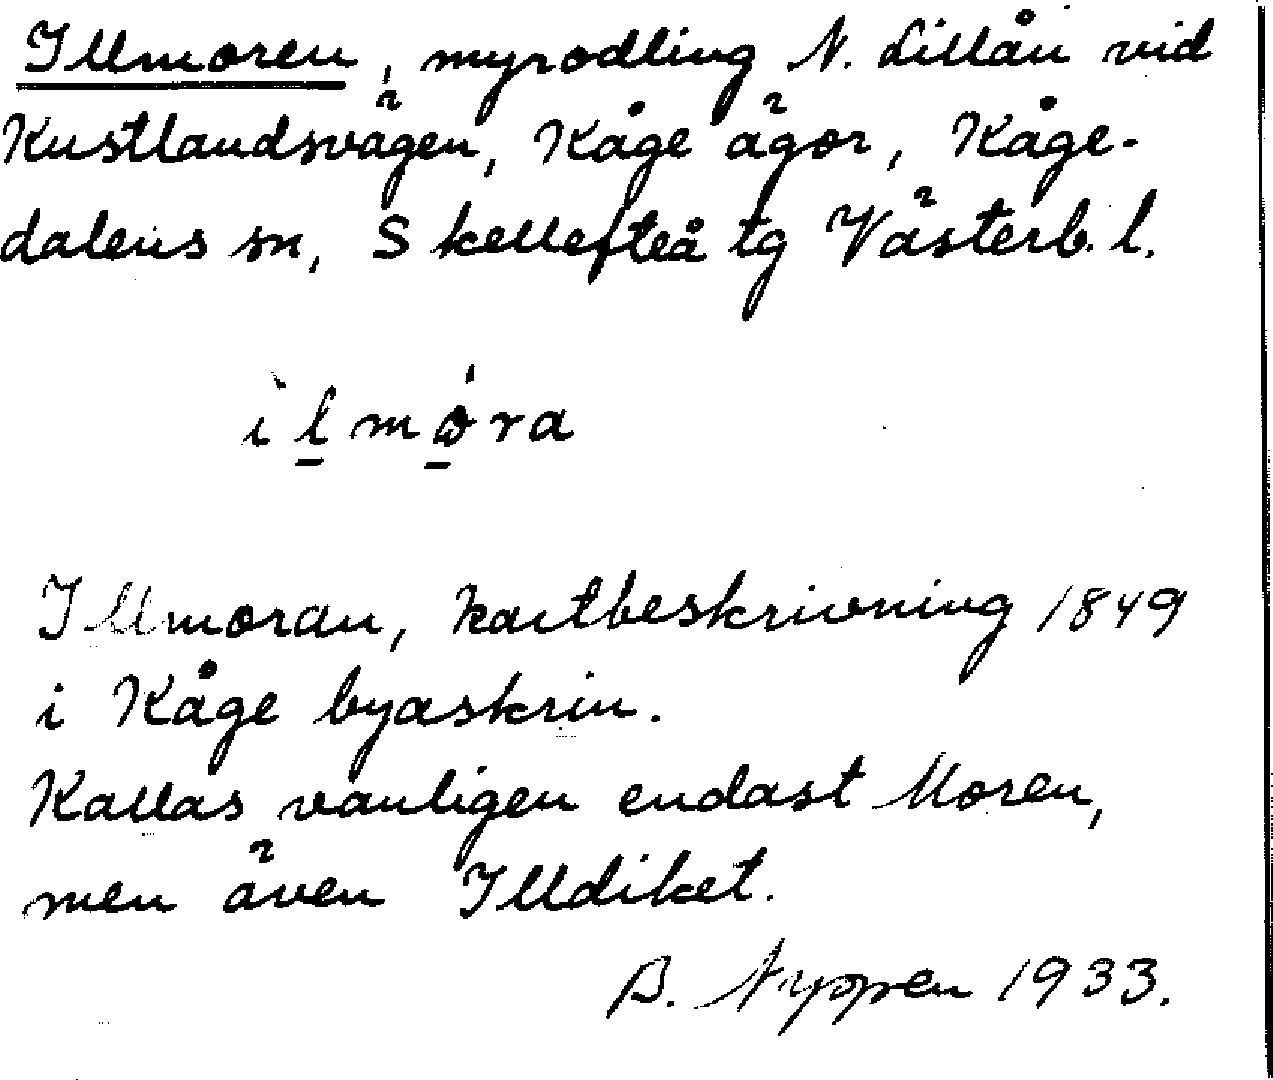 Illmoren, myrodling N. Lillån vid
Kustlandsvägen, Kåge ägor, Kåge-
dalens sn, Skellefteå tg Västerb. l.
ìl̠mó̠ra
Illmoran, kartbeskrivning 1849
i Kåge byaskrin.
Kallas vanligen endast Moren,
men även Illdiket.
B. Nyppen 1933.